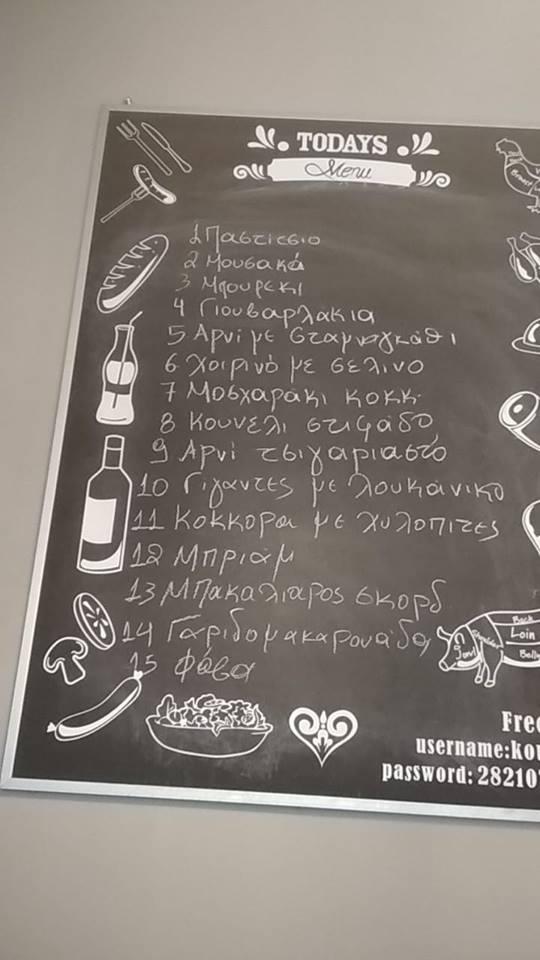 TODAYS
Menu
1 Παστιτσιο
2 Μουσακά
3 Μπουρεκι
4 Γιουβαρλακια
5 Αρνί με σταμναγκάθι
6 Χοιρινό με σελινο
7 Μοσχαράκι κοκκ.
8 Κουνελι στιφάδο
9 Αρνί τσιγαριαστό
10 Γιγαντες με λουκάνικο
11 Κοκκορα με χυλοπιτες
12 Μπριαμ
13 Μπακαλιαρος σκορδ
14 Γαριδομακαρονάδα
15 Φάβα
Breast
Back
Loin
Shoulder
Jowl
Belly
Free
username:kou
password: 28210